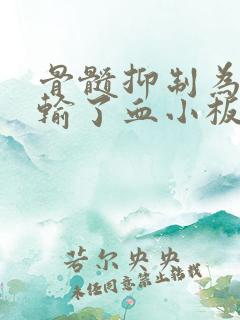 骨髓抑制为
输了血小板
若尔央央
未经同意禁止转载